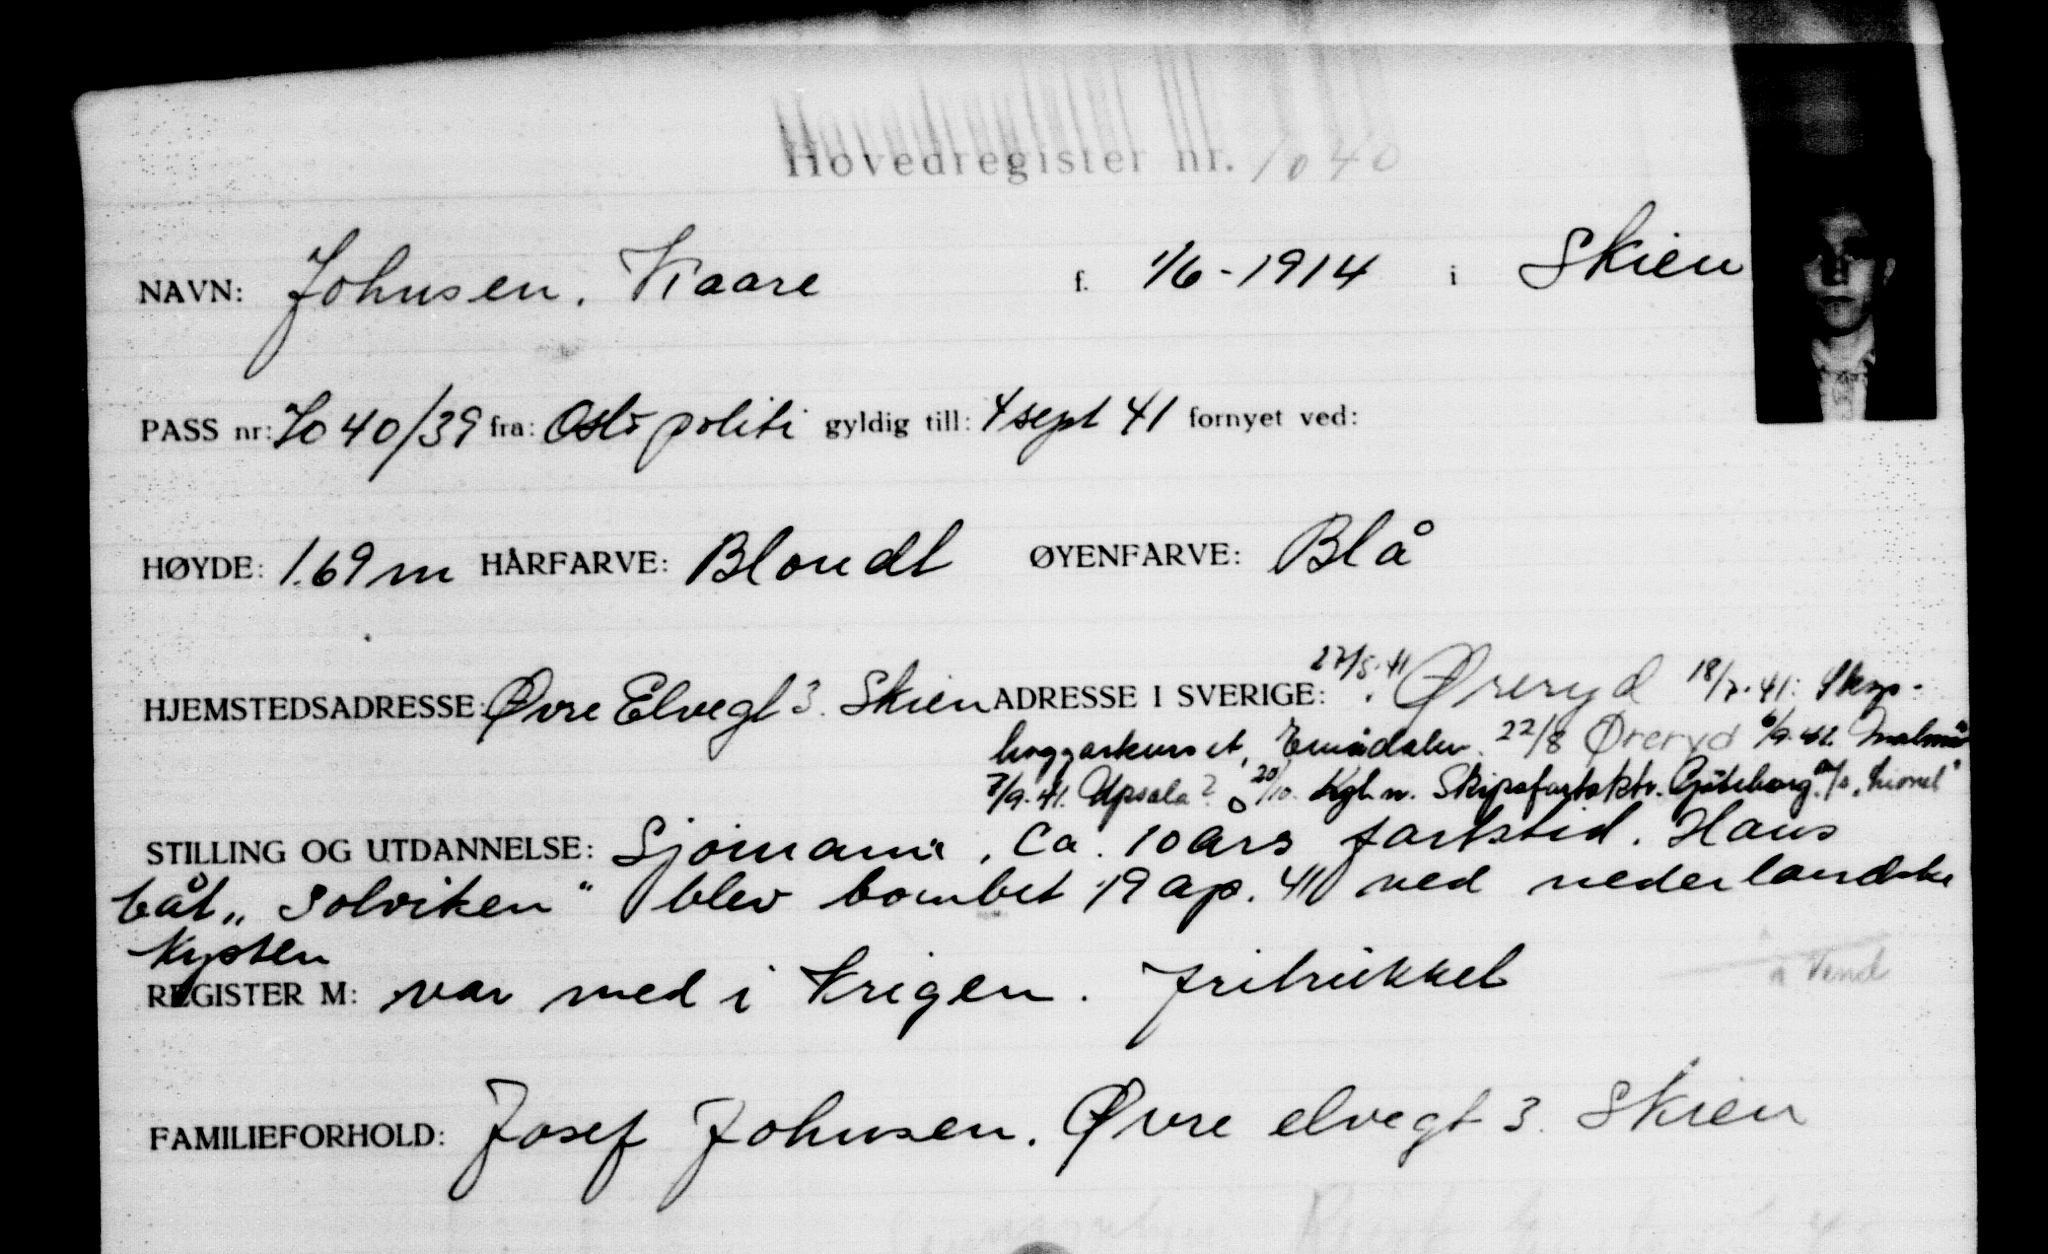 Hovedregister nr. 1040
NAVN: Johnsen, Kaare f. 1/6-1914 i Skien
PASS nr: 7040/39 fra: Oslo politi gyldig till: 4 sept 41 fornyet ved:
HØYDE: 1.69 m HÅRFARVE: Blondt ØYENFARVE: Blå
HJEMSTEDSADRESSE: Øvre Elvegt 3. Skien ADRESSE I SVERIGE: 27/5.41 Øreryd 18/7.41: Skog-
hoggarkurset, 22/8 Øreryd 6/9.41. Malmö
7/9.41. Upsala? 20/10. Kgl. n. Skipsfartsktr. Göteborg
STILLING OG UTDANNELSE: Sjømann, Ca. 10 års fartstid. Hans
båt „Solviken" blev bombet 19 ap. 41 ved nederlandske
kysten
REGISTER M: var med i krigen. fritrukket
FAMILIEFORHOLD: Josef Johnsen. Øvre elvegt 3. Skien